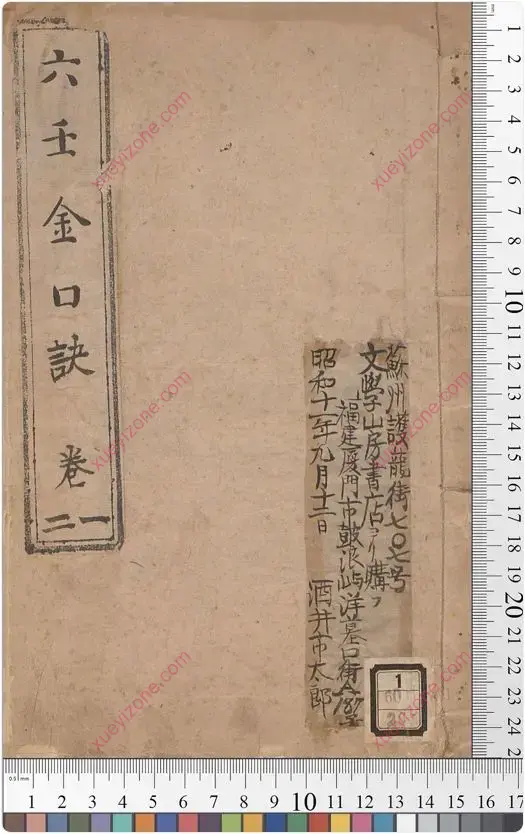 六壬金口訣
卷
一二
蘇州護龍街七〇七号
文學山房書店ヨリ購フ
福建厦門市鼓浪嶼洋墓口街
昭和十一年九月十二日 酒井市太郎
1
60
xueyizone.com
xueyizone.com
xueyizone.com
xueyizone.com
xueyizone.com
xueyizone.com
1 2 3 4 5 6 7 8 9 10 11 12 13 14 15 16 17 18 19 20 21 22 23 24
0.5mm
1 2 3 4 5 6 7 8 9 10 11 12 13 14 15 16 17